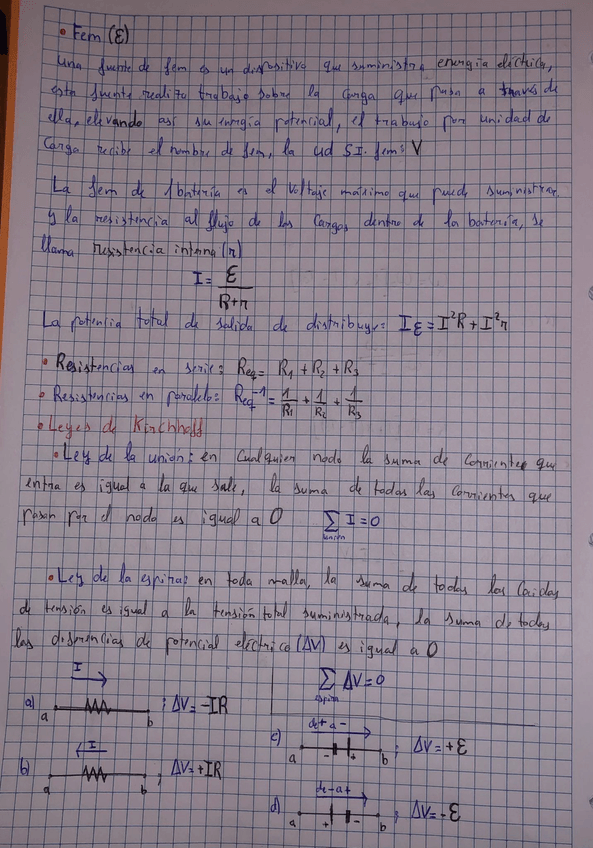 • Fem (Ɛ)
Una fuente de fem es un dispositivo que suministra energía eléctrica,
esta fuente realiza trabajo sobre la carga que pasa a través de
ella, elevando así su energía potencial, el trabajo por unidad de
carga recibe el nombre de fem, la ud SI. fem: V
La fem de 1 batería es el voltaje máximo que puede suministrar
y la resistencia al flujo de las cargas dentro de la batería, se
llama resistencia interna (r)
I = Ɛ / R+r
La potencia total de salida de distribuye: IƐ = I²R + I²r
• Resistencias en serie: Req = R1 + R2 + R3
• Resistencias en paralelo: Req⁻¹ = 1/R1 + 1/R2 + 1/R3
• Leyes de Kirchhoff
• Ley de la union: en cualquier nodo la suma de corrientes que
entra es igual a la que sale, la suma de todas las corrientes que
pasan por el nodo es igual a 0 ∑ I = 0
unión
• Ley de la espira: en toda malla, la suma de todas las caídas
de tensión es igual a la tensión total suministrada, la suma de todas
las diferencias de potencial eléctrico (ΔV) es igual a 0
∑ ΔV = 0
espira
I
a) a b ; ΔV = -IR
I
b) a b ; ΔV = +IR
de + a -
c) a - + b ; ΔV = +Ɛ
de - a +
d) a + - b ; ΔV = -Ɛ